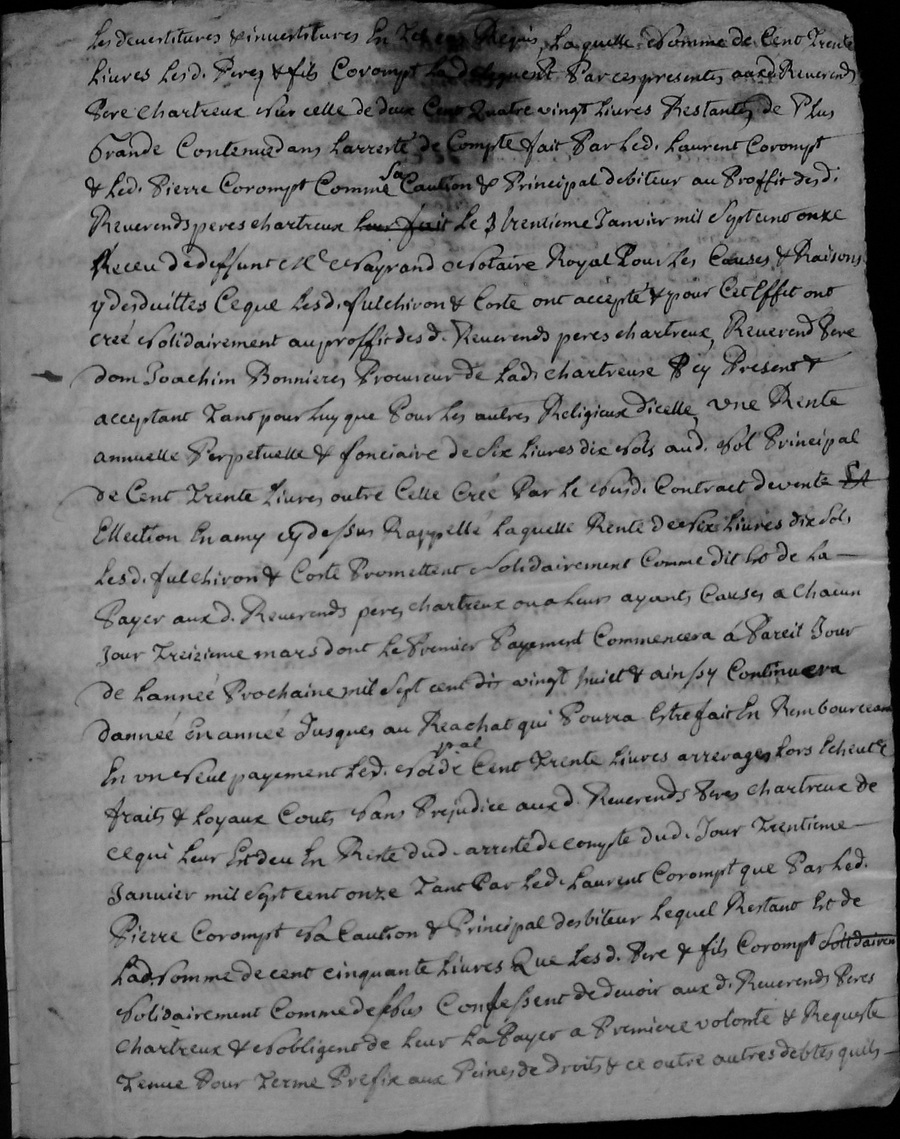 Les devestitures & investitures En tel cas Requis, Laquelle Somme de Cent Trente
Livres Lesd. Peres & fils Corompt par ces presentes auxd Reverends
Pere chartreux Sur celle de deux Cent Quatre vingt Livres Restantes de Plus
Grande Contenue dans Larresté de Compte fait Par Led. Laurent Corompt
& Led. Pierre Corompt Comme Sa Caution & Principal debiteur au Proffit desd.
Reverends peres chartreux Leur fait Le trentieme Janvier mil Sept cent onze
Receu de deffunt Me Nayrand Notaire Royal Pour Les Causes & Raisons
y desduittes Ce que Lesd. fulchiron & Coste ont accepté & pour Cet Effit ont
creé Solidairement au proffit desd. Reverends peres chartreux, Reverend Pere
dom Joachim Bonnieres Procureur de Lad. chartreuse Icy Present &
acceptant Tant pour Luy que Pour Les autres Religieux dicelle, une Rente
annuelle Perpetuelle & fonciaire de Six Livres dix Sols aud. Sol Principal
de Cent Trente Livres outre Celle Creé Par Le Susd. Contract de vente Et
Ellection En amy cy dessus Rappellé Laquelle Rente de Six Livres dix Sols
Lesd. fulchiron & Coste Promettent Solidairement Comme dit Est de La
Payer auxd. Reverends peres chartreux ou a Leurs ayants Causes a Chacun
Jour Treizieme mars dont Le Premier Payement Commencera á Pareil Jour
de Lanneé Prochaine mil Sept cent vingt huict & ainssy Continuera
danneé En anneé Jusques au Reachat qui Pourra Estre fait En Rembourceant
En un Seul payement Led. Sol pal de Cent Trente Livres arrerages Lors Echeut &
fraits & Loyaux Couts Sans Prejudice auxd. Reverends Peres Chartreux de
ce qui Leur Est deu En Reste dud. arresté de compte dud. Jour Trentieme
Janvier mil Sept cent onze Tant Par Led. Laurent Corompt que Par Led.
Pierre Corompt Sa Caution & Principal desbiteur Lequel Restant Est de
Lad. Somme de cent cinquante Livres Que Lesd. Pere & fils Corompt Solidairem
Solidairement Comme dessus Confessent de devoir aux d. Reverends Peres
Chartreux & Sobligent de Leur La Payer a Premiere volonté & Requeste
Tenue Pour Terme Prefix aux Peines de droits & ce outre autres debtes quils